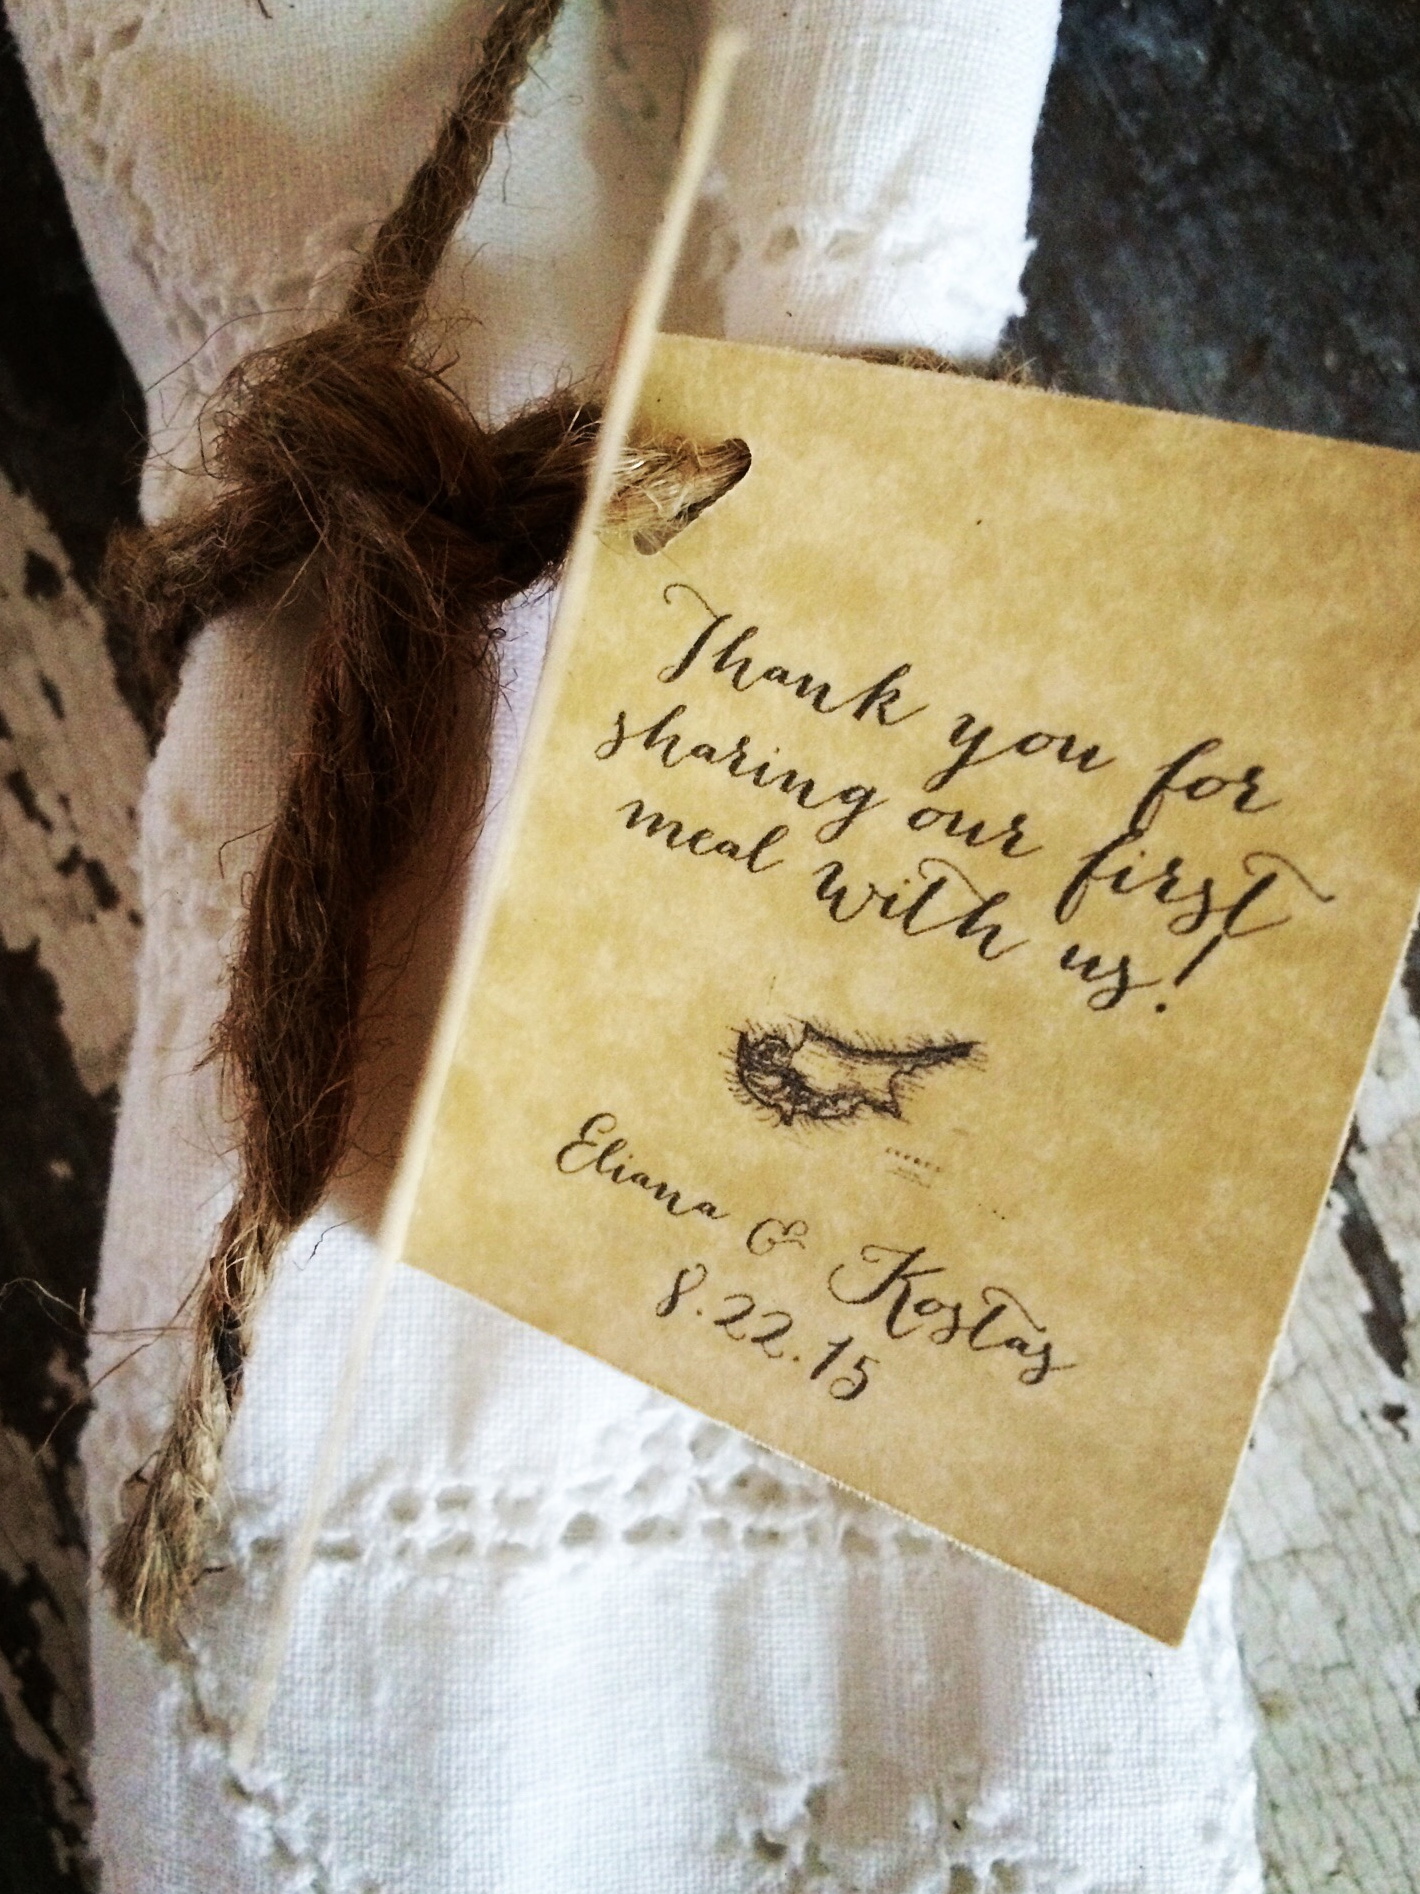 Thank you for
sharing our first
meal with us!
Eliana & Kostas
8.22.15